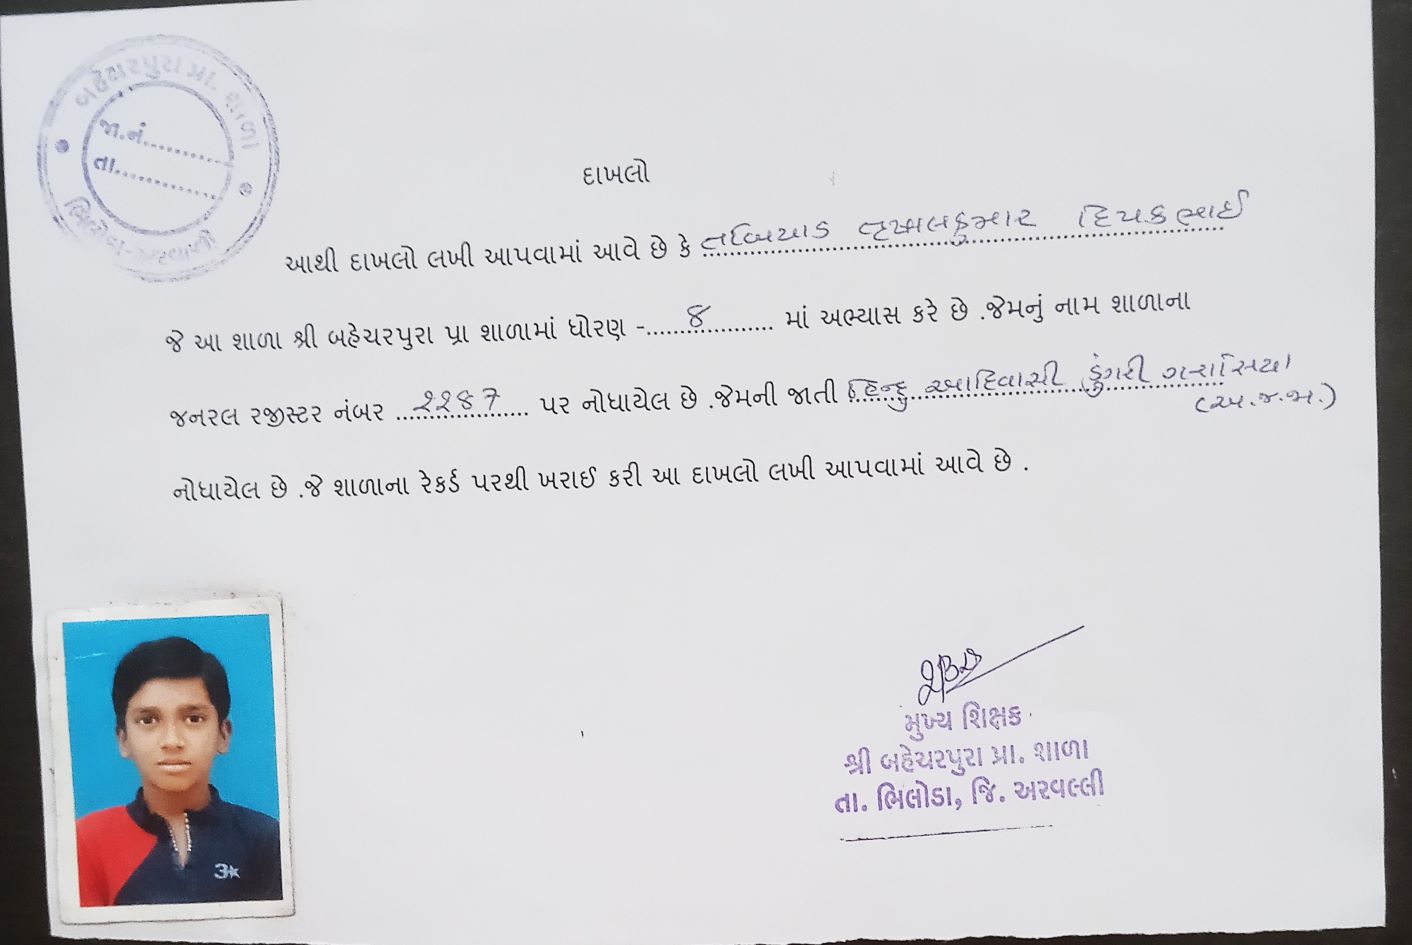 બહેચરપુરા પ્રા. શાળા
જા.નં.............
તા...............
ભિલોડા-અરવલ્લી
દાખલો
આથી દાખલો લખી આપવામાં આવે છે કે તબિયાડ વૃષાલકુમાર દિપકભાઈ
જે આ શાળા શ્રી બહેચરપુરા પ્રા શાળામાં ધોરણ -......8........... માં અભ્યાસ કરે છે .જેમનું નામ શાળાના
જનરલ રજીસ્ટર નંબર ...૨૨૪૭... પર નોધાયેલ છે .જેમની જાતી હિન્દુ આદિવાસી ડુંગરી ગરાસિયા
(અ.જ.જા.)
નોધાયેલ છે .જે શાળાના રેકર્ડ પરથી ખરાઈ કરી આ દાખલો લખી આપવામાં આવે છે .
મુખ્ય શિક્ષક
શ્રી બહેચરપુરા પ્રા. શાળા
તા. ભિલોડા, જિ. અરવલ્લી
3